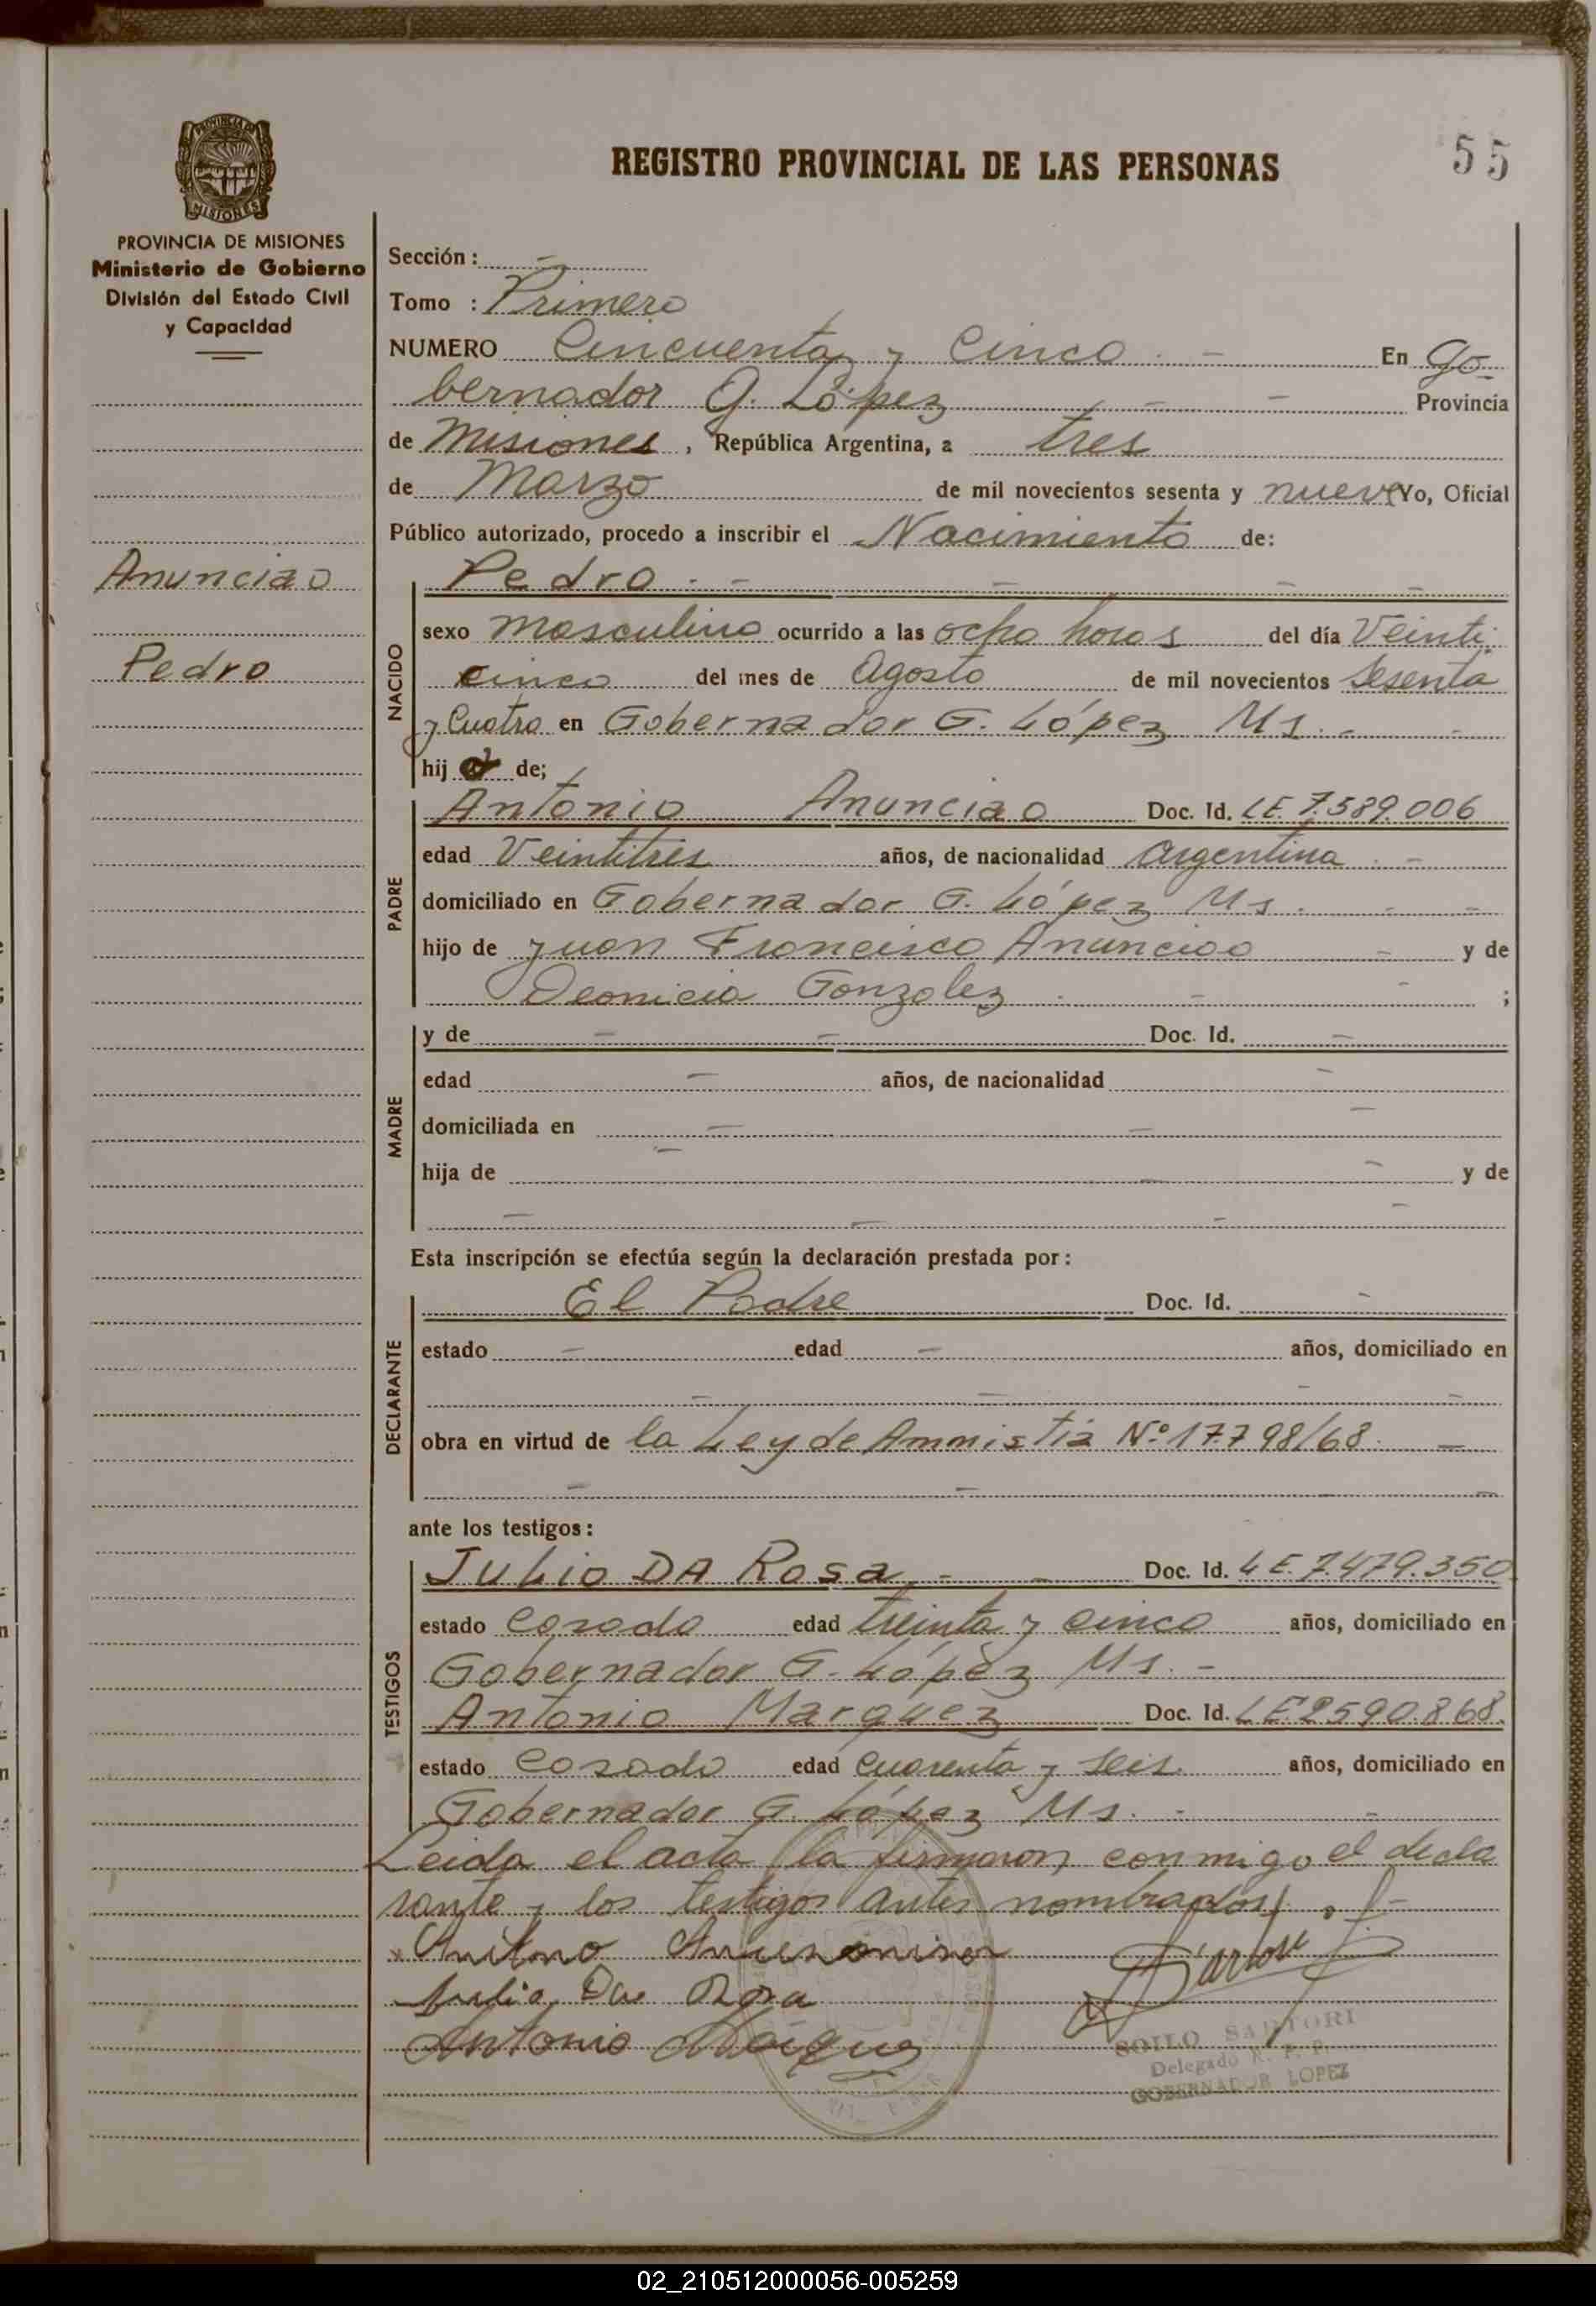 REGISTRO PROVINCIAL DE LAS PERSONAS
55
PROVINCIA DE MISIONES
PROVINCIA DE MISIONES
Ministerio de Gobierno
División del Estado Civil
y Capacidad
Anunciao
Pedro
Sección : -
Tomo : Primero
NUMERO Cincuenta y Cinco - En Go-
bernador G. López - - Provincia
de Misiones, República Argentina, a tres
de Marzo de mil novecientos sesenta y nueve Yo, Oficial
Público autorizado, procedo a inscribir el Nacimiento de:
NACIDO
Pedro - - - -
sexo masculino ocurrido a las ocho horas del día Veinti-
cinco del mes de Agosto de mil novecientos Sesenta
y Cuatro en Gobernador G. López Ms. - -
hij o de;
PADRE
Antonio Anunciao Doc. Id. LE 7.589.006
edad Veintitres años, de nacionalidad Argentina -
domiciliado en Gobernador G. López Ms. - -
hijo de Juan Francisco Anunciao - y de
Deonicia Gonzalez - - ;
MADRE
y de - - Doc. Id. -
edad - años, de nacionalidad -
domiciliada en - -
hija de - - y de
- - - -
Esta inscripción se efectúa según la declaración prestada por :
DECLARANTE
El Padre Doc. Id. -
estado - edad - años, domiciliado en
- - - -
obra en virtud de la Ley de Amnistia Nº 17.798/68. -
- - - -
ante los testigos :
TESTIGOS
Julio DA Rosa - - Doc. Id. LE. 7.479.350
estado Casado edad treinta y cinco años, domiciliado en
Gobernador G. López Ms. -
Antonio Marquez Doc. Id. LE 2590.868.
estado Casado edad cuarenta y seis. años, domiciliado en
Gobernador G. López Ms. - -
Leida el acta la firmaron conmigo el decla
rante y los testigos antes nombrados.
Julio Da Rosa
Antonio
SOILO SARTORI
Delegado R. P. P.
GOBERNADOR LOPEZ
02_210512000056-005259